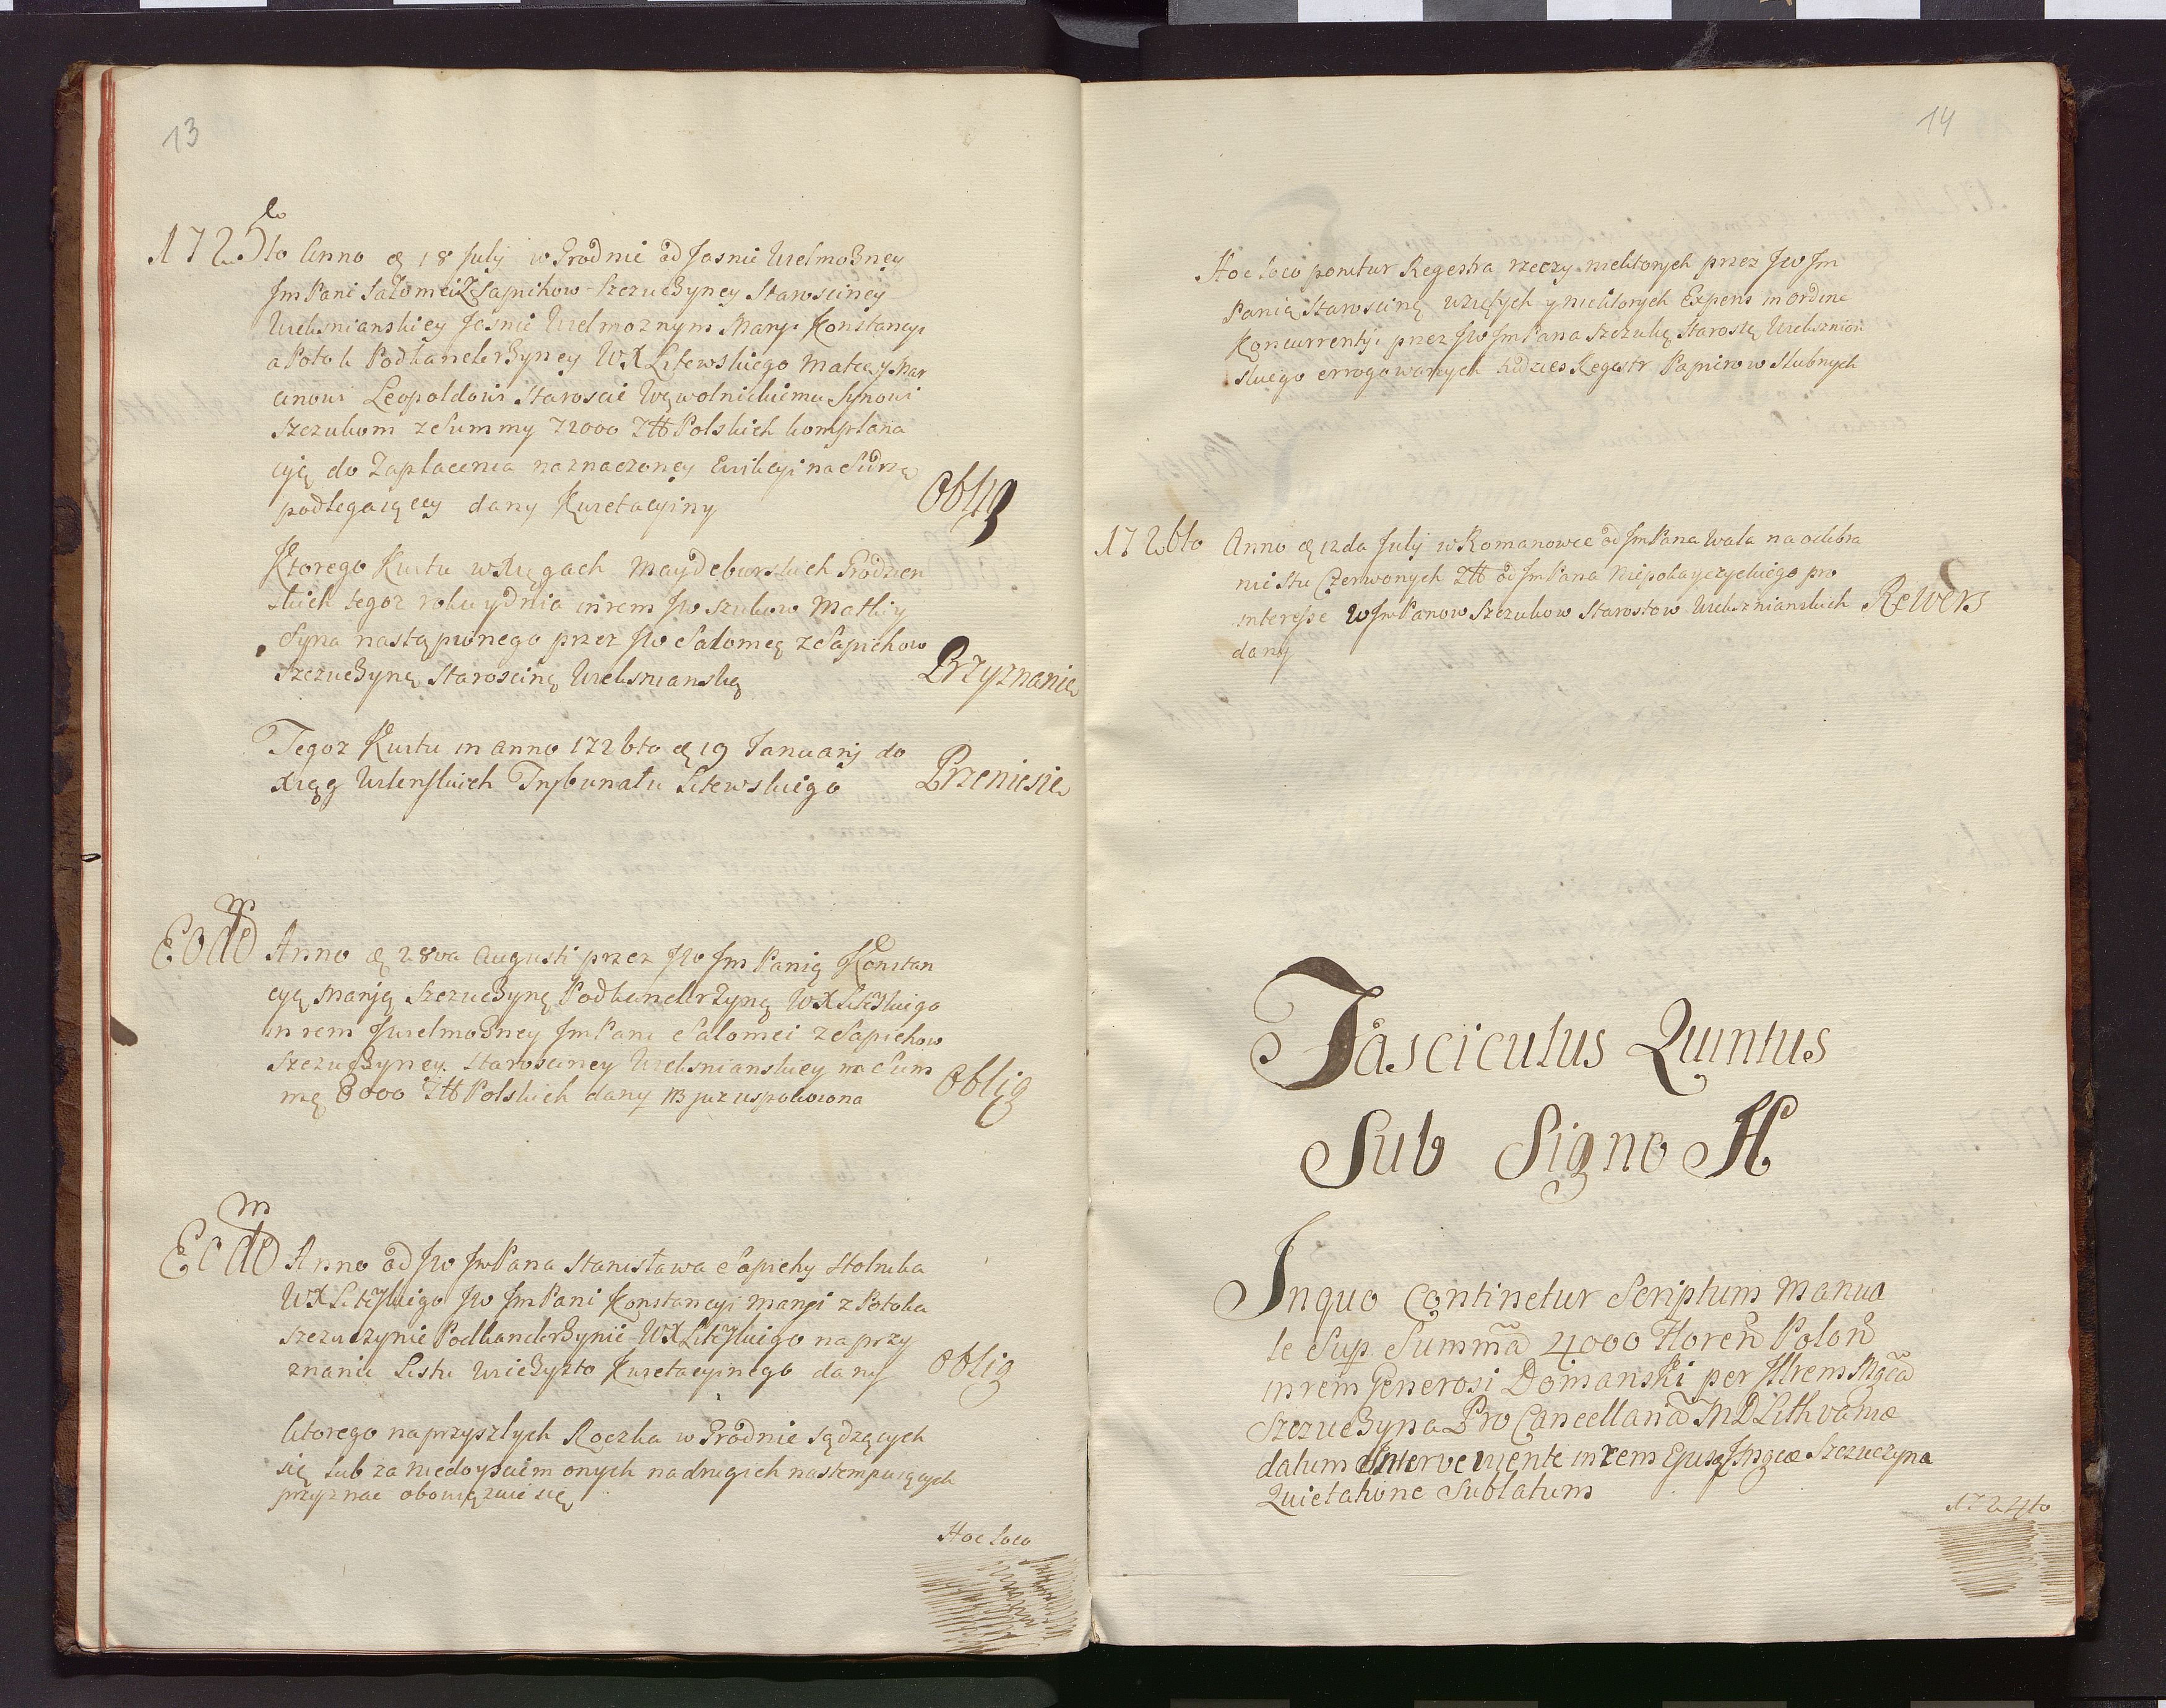 13
1725to Anno d 18 July w Grodnie od Jasnie Wielmożney
Jm Pani Salomei z Sapiehow Szczuczyney Starosciney
Wielisnianskiey Jasnie Wielmoznym Maryi Konstancyi
a Potok Podkanclerzyney WXLitewskiego Matcę y Mar
cinowi Leopoldowi Staroscie Wąwolnickiemu Synowi
Szczukom z Summy 72000 Złł Polskich komplana
cyję do Zapłacenia naznaczoney Ewikcyi na Sidrze
podlegaięcey dany Kwietacyiny
Oblig
Ktorego Kwitu w Xięgach Maydeburskich Grodzien
skich tegoz roku y dnia in rem Jw Szczukow Matki y
Syna nastąpionego przez Jw Salomeę z Sapiehow
Szczuczynę Starosciną Wielisnianską
Przyznanie
Tegoz Kwitu in anno 1726to d 19 Januarij do
Xiąg Wilenskich Trybunału Litewskiego
Przeniesie
Eodem Anno d 28va Augusti przez Jw Jm Panię Konstan
cyę Maryę Szczuczynę Podkanclerzynę WXLittSkiego
in rem Jwielmożney Jm Pani Salomei z Sapiehow
Szczuczyney Starosciney Wielisnianskiey na Sum
mę 8000 Złł Polskich dany NB juz uspokoiona
Oblig
Eodem Anno od Jw Jm Pana Stanisława Sapiehy Stolnika
WXLittSkiego Jw Jm Pani Konstancyi Maryi z Potoka
Szczuczynie Podkanclerzynie WXLittSkiego na przy
znanie Listu Wieczysto Kwietacyinego dany
Oblig
ktorego na przyszłych Roczka w Grodnie sądzących
się lub za niedoysciem onych na drugich nastempuiących
przyznac obowięzuie się
Hoc loco
14
Hoc loco ponitur Regestra rzeczy niektorych przez Jw Jm
Panię Starosciną wziętych y niektorych Expens in ordine
Konkurrentyi przez Jw Jm Pana Szczukę Starostę Wielisnian
skiego errogowanych tudziez Regestr Papierow Slubnych
1726to Anno d 12da July w Romanowce od Jm Pana Wala na odebra
nie Stu Czerwonych Złł od Jm Pana Niepokoyczyckiego pro
interesse W Jm Panow Szczukow Starostow Wielisnianskich
dany
Rewers
Fasciculus Quintus
Sub Signo H
In quo Continetur Scriptum Manua
le Sup. Summã 4000 Floren Polon
in rem Generosi Domanski per Illrem Mgcã
Szczuczyna Pro Cancellariã M D Lithvaniæ
datum Interveniente in rem Ejusq Mgcæ Szczuczyna
Quietatione Sublatum
1724to